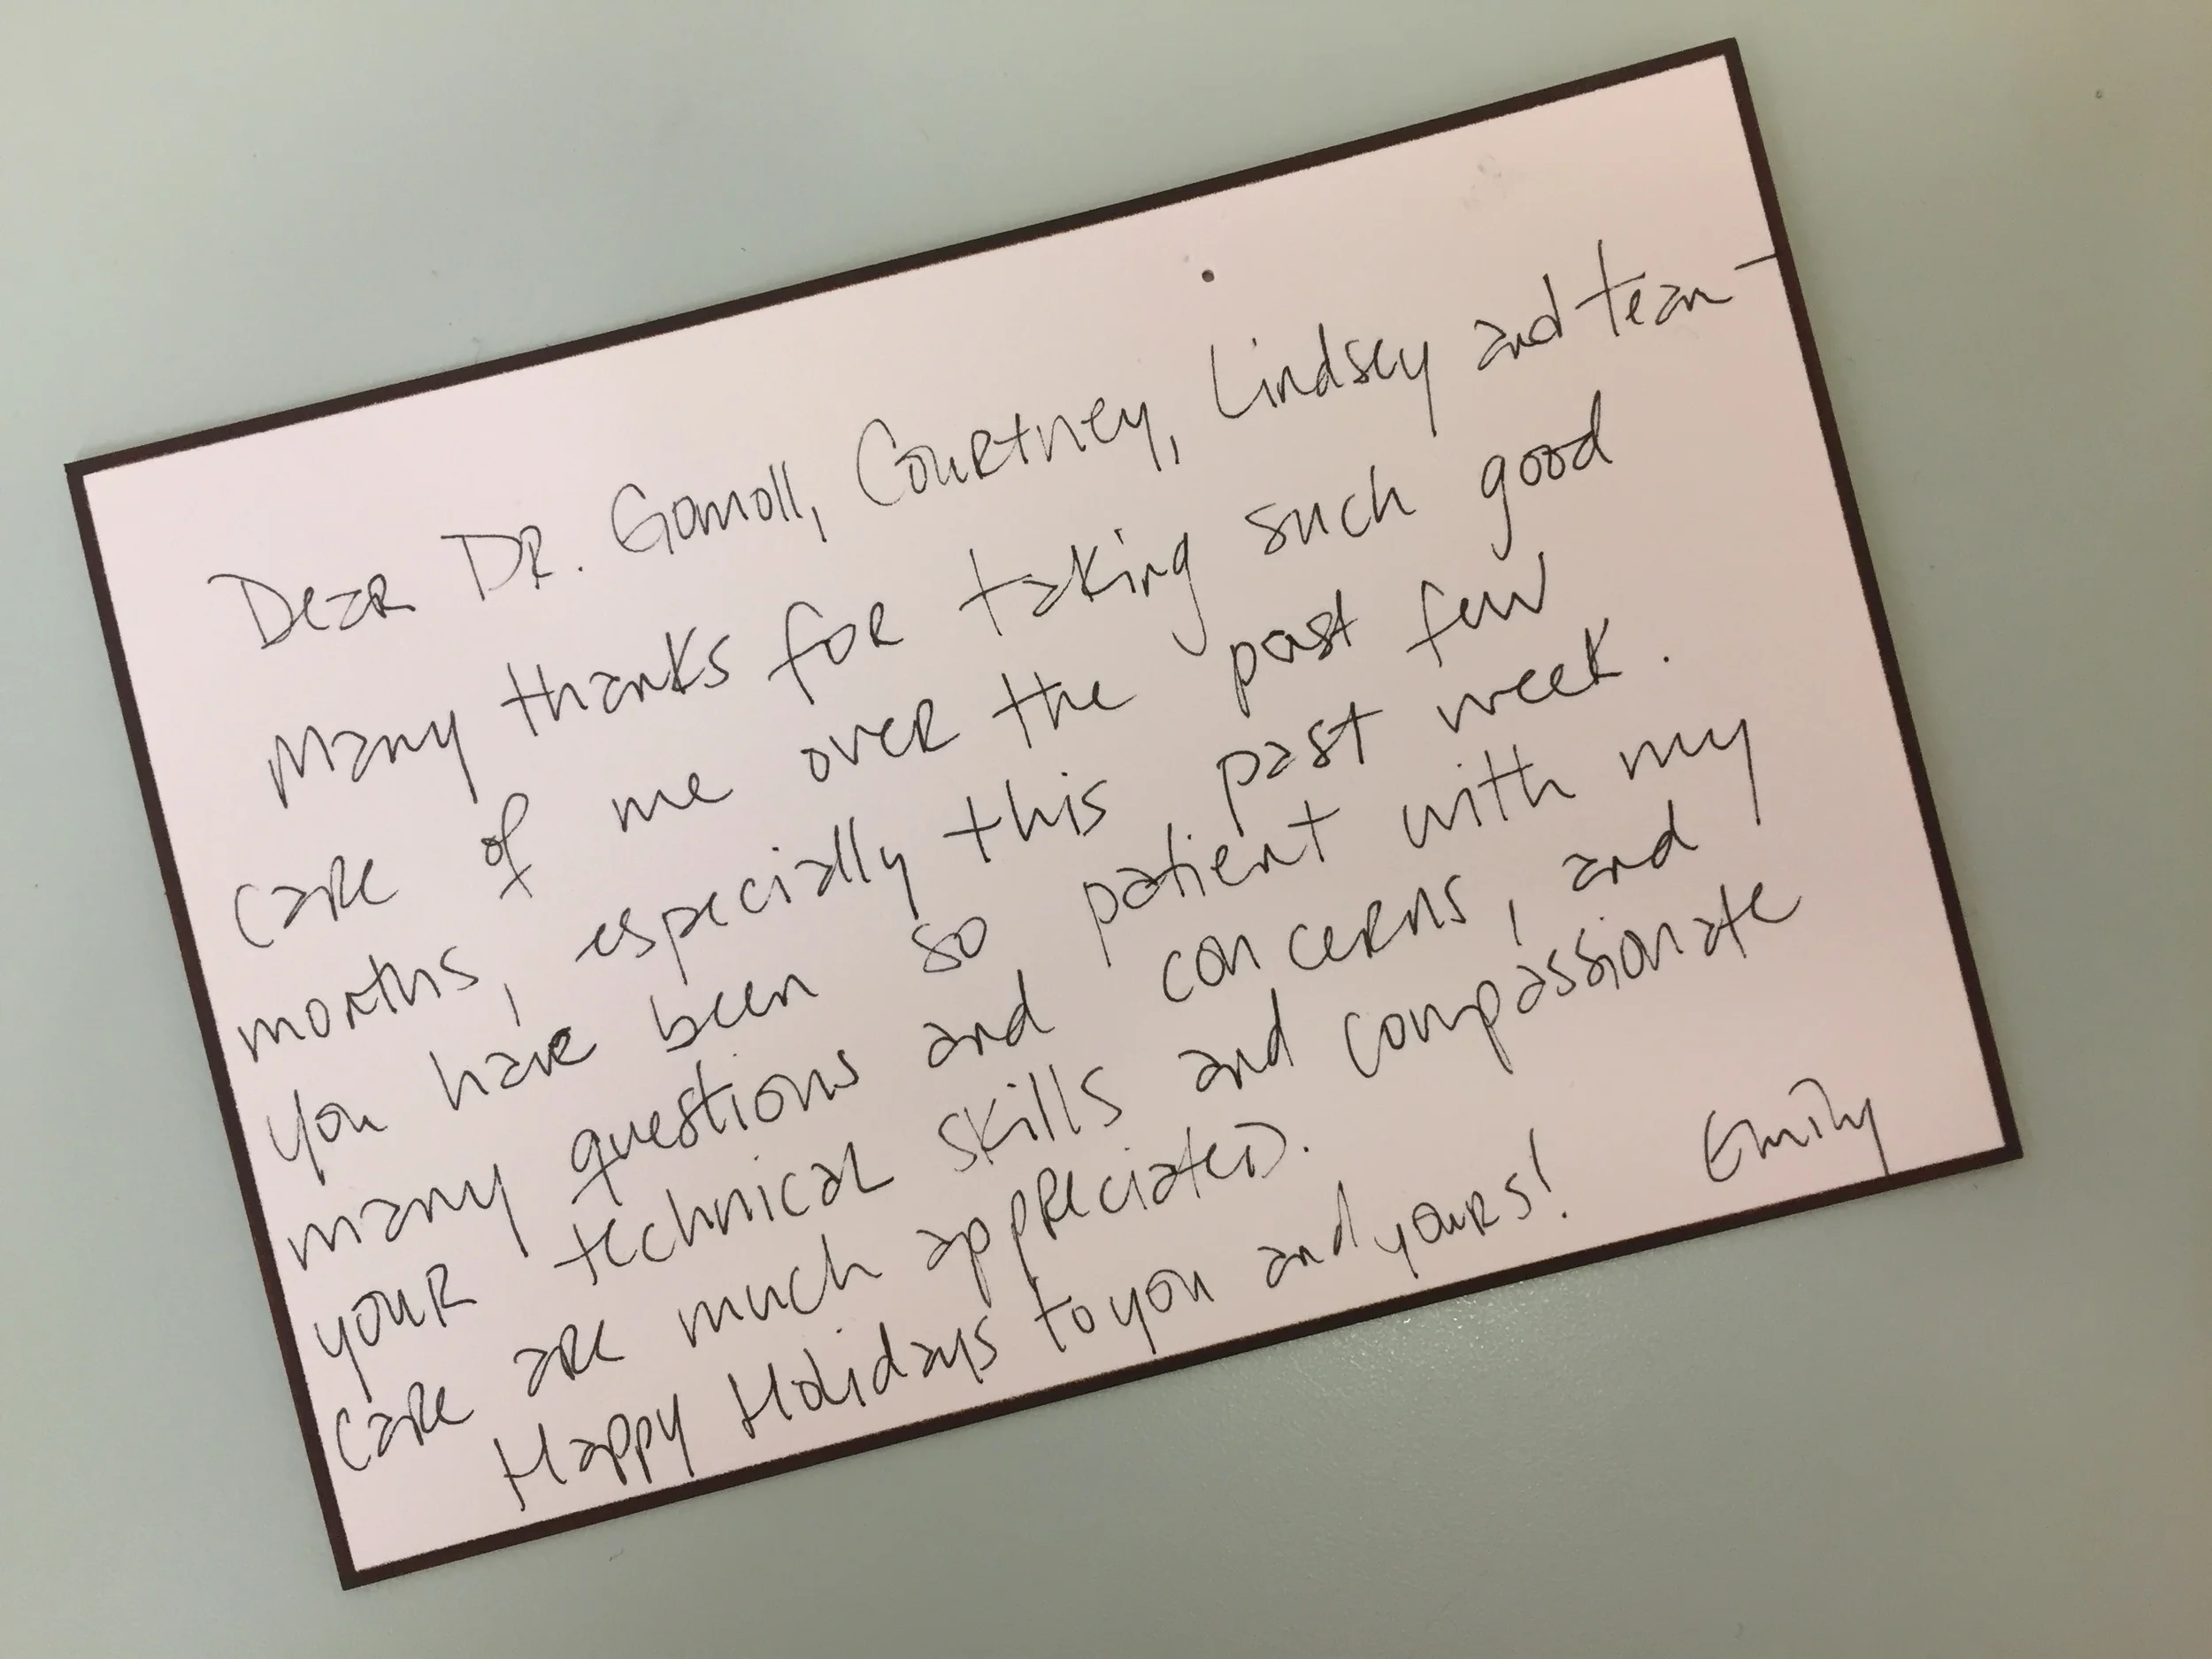 Dear Dr. Gomoll, Courtney, Lindsey and team -
Many thanks for taking such good
care of me over the past few
months, especially this past week.
you have been so patient with my
many questions and concerns, and
your technical skills and compassionate
care are much appreciated.
Happy Holidays to you and yours!
Emily